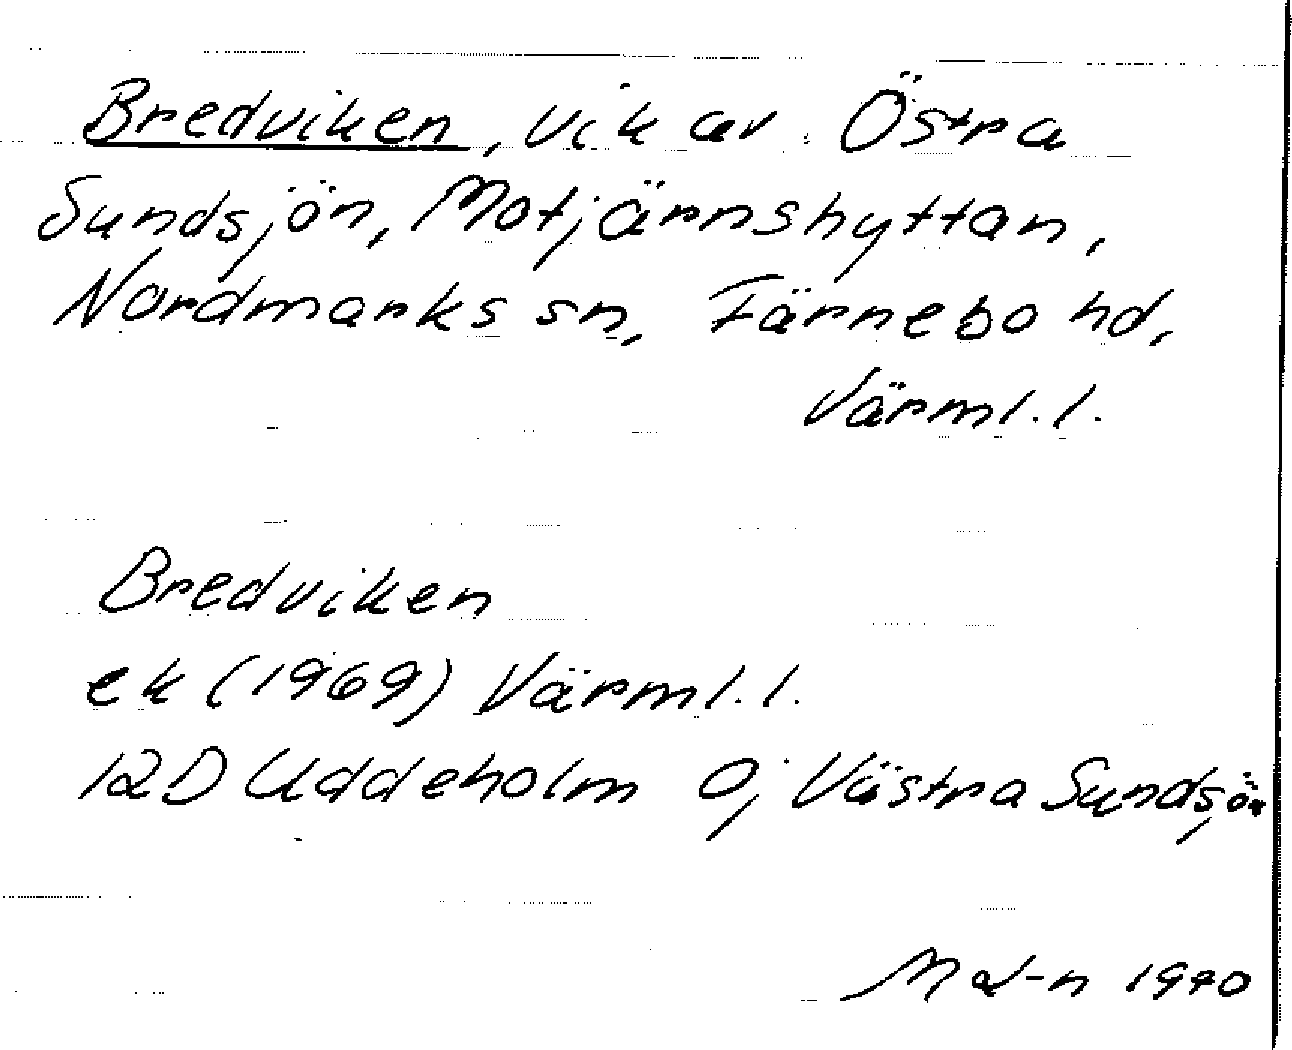 Bredviken, vik av Östra
Sundsjön, Motjärnshyttan,
Nordmarks sn, Färnebo hd,
Värml. l.
Bredviken
ek (1969) Värml. l.
12D Uddeholm 0j Västra Sundsjön
1970